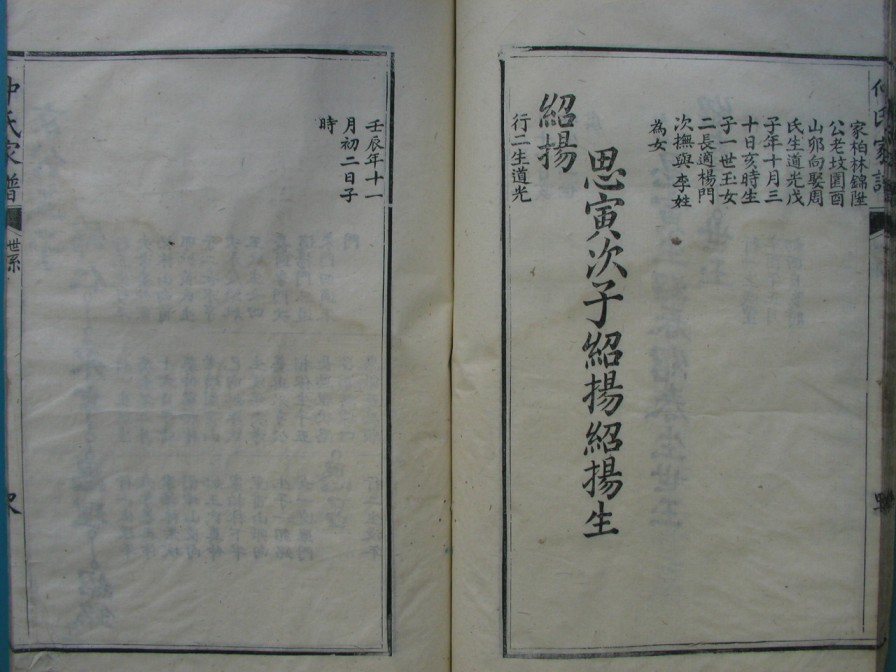 家柏林錦陞
公老坟園酉
山夘向娶周
氏生道光戊
子年十月三
十日亥時生
子一世玉女
二長適楊門
次撫與李姓
為女
思寅次子紹揚紹揚生
紹揚
行二生道光
壬辰年十一
月初二日子
時
仲氏家譜
世系